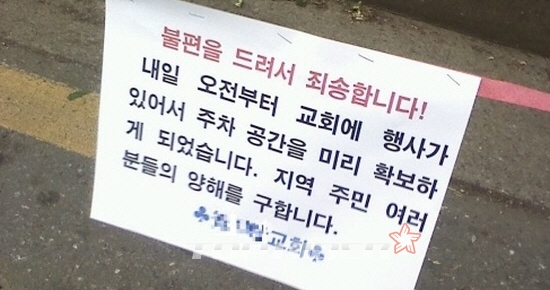 불편을 드려서 죄송합니다!
내일 오전부터 교회에 행사가
있어서 주차 공간을 미리 확보하
게 되었습니다. 지역 주민 여러
분들의 양해를 구합니다.
교회